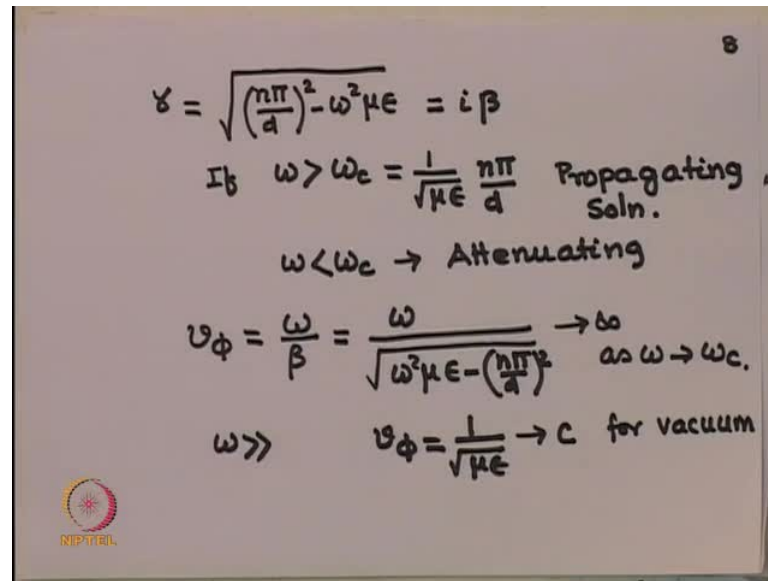 8
γ = √((nπ/d)² - ω²μϵ) = iβ
If ω > ωc = 1/√μϵ nπ/d Propagating
Soln.
ω < ωc → Attenuating
υΦ = ω/β = ω/√(ω²μϵ - (nπ/d)²) → ∞
as ω → ωc.
ω >> υΦ = 1/√μϵ → c for vacuum
NPTEL